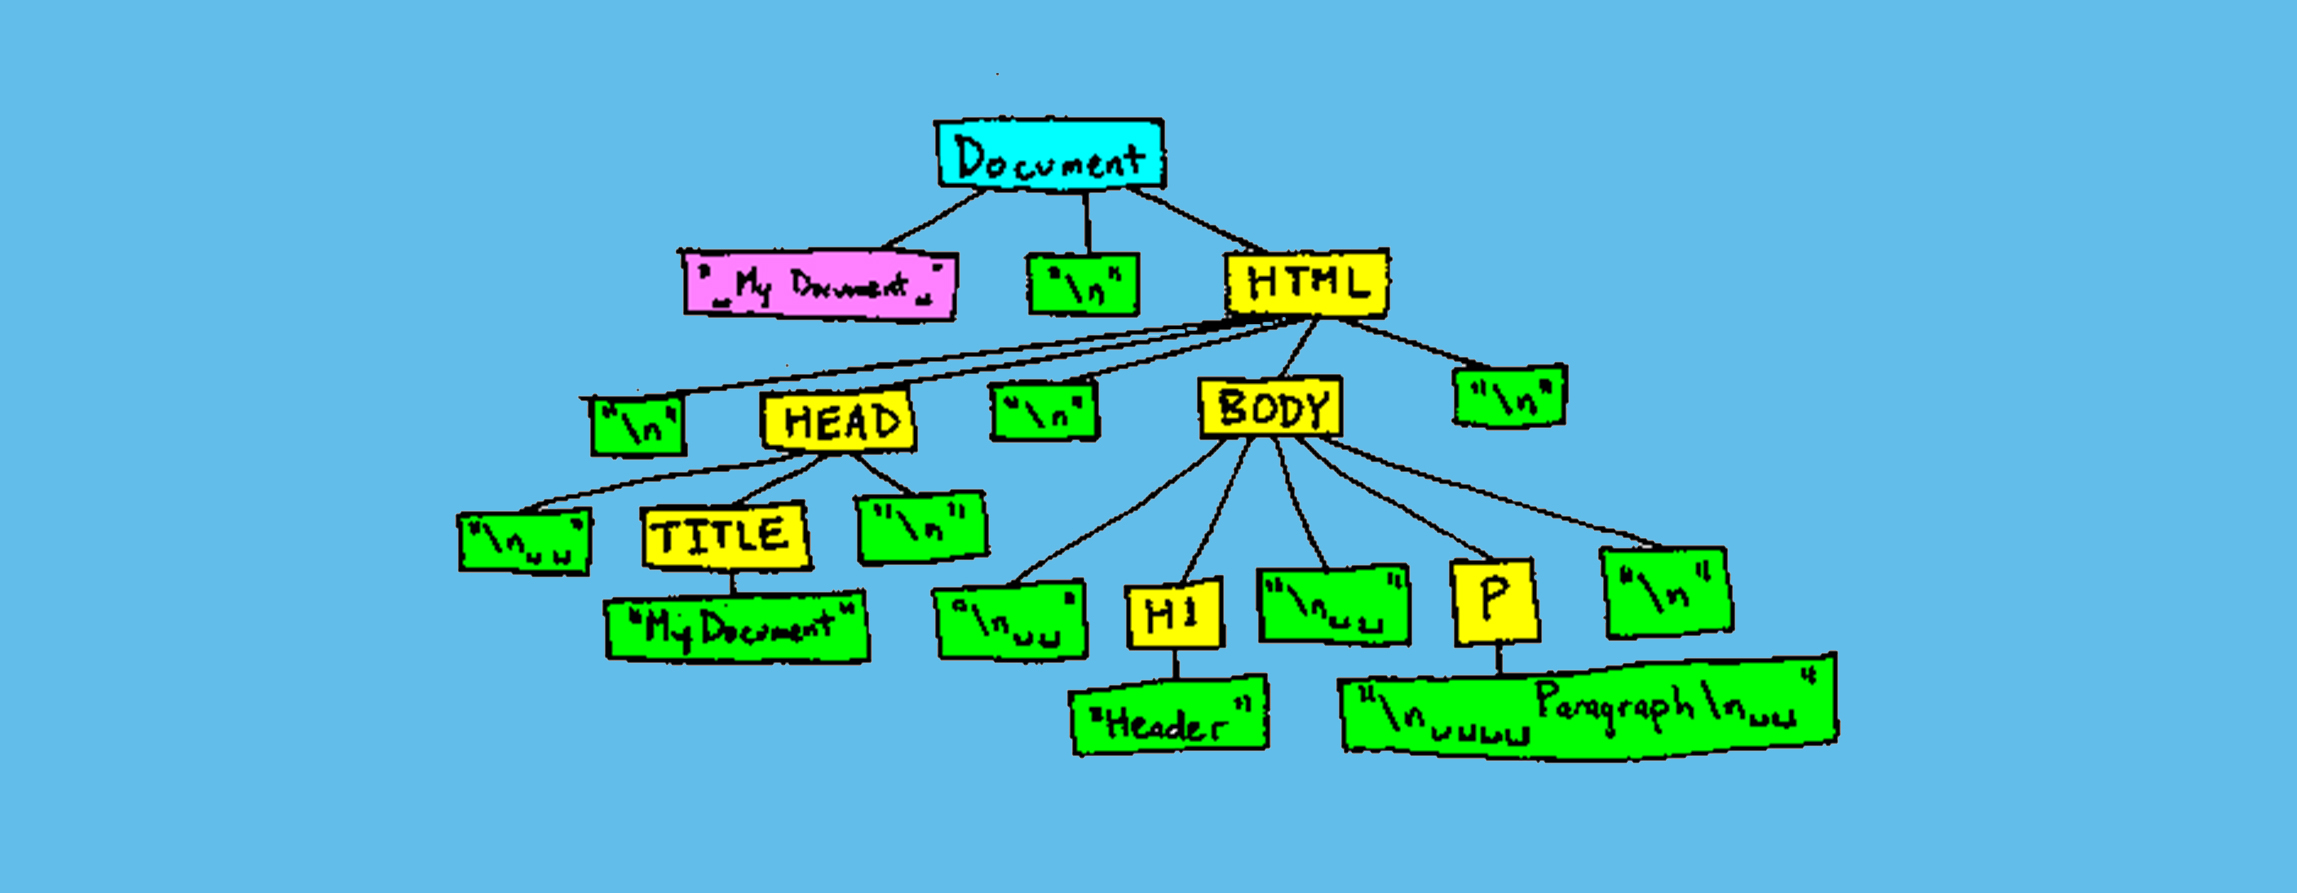 Document
"␣My Document␣"
"\n"
HTML
"\n"
HEAD
"\n"
BODY
"\n"
"\n␣␣"
TITLE
"\n"
"\n␣␣"
H1
"\n␣␣"
P
"\n"
"My Document"
"Header"
"\n␣␣␣␣Paragraph\n␣␣"